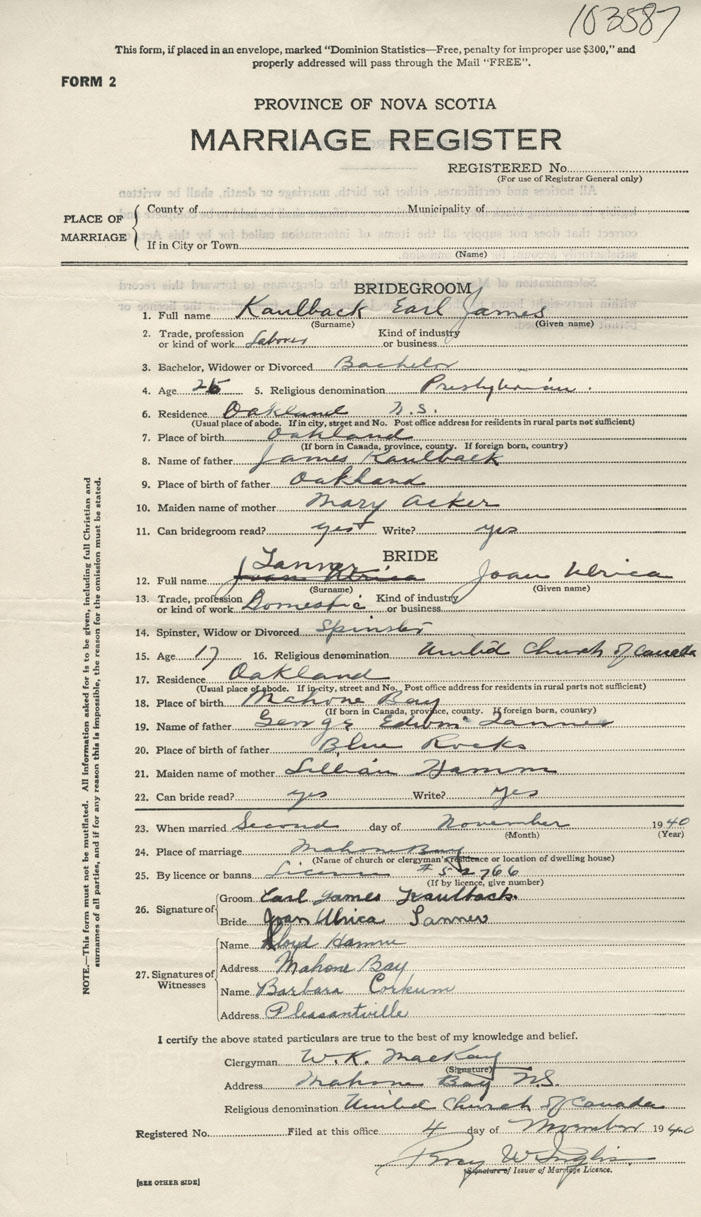 103587
This form, if placed in an envelope, marked "Dominion Statistics—Free, penalty for improper use $300," and
properly addressed will pass through the Mail "FREE".
FORM 2
PROVINCE OF NOVA SCOTIA
MARRIAGE REGISTER
REGISTERED No.
(For use of Registrar General only)
PLACE OF MARRIAGE
County of Municipality of
If in City or Town
(Name)
BRIDEGROOM
1. Full name Kaulback Earl James
(Surname) (Given name)
2. Trade, profession or kind of work Laborer Kind of industry or business
3. Bachelor, Widower or Divorced Bachelor
4. Age 25 5. Religious denomination Presbyterian.
6. Residence Oakland N.S.
(Usual place of abode. If in city, street and No. Post office address for residents in rural parts not sufficient)
7. Place of birth Oakland
(If born in Canada, province, county. If foreign born, country)
8. Name of father James Kaulback
9. Place of birth of father Oakland
10. Maiden name of mother Mary Acker
11. Can bridegroom read? yes Write? yes
BRIDE
Tanner
12. Full name Joan Ulrica Joan Ulrica
(Surname) (Given name)
13. Trade, profession or kind of work Domestic Kind of industry or business
14. Spinster, Widow or Divorced Spinster
15. Age 17 16. Religious denomination United Church of Canada
17. Residence Oakland
(Usual place of abode. If in city, street and No. Post office address for residents in rural parts not sufficient)
18. Place of birth Mahone Bay
(If born in Canada, province, county. If foreign born, country)
19. Name of father George Edwin Tanner
20. Place of birth of father Blue Rocks
21. Maiden name of mother Lillian Hamm
22. Can bride read? yes Write? yes
23. When married Second day of November 1940
(Month) (Year)
24. Place of marriage Mahone Bay
(Name of church or clergyman's residence or location of dwelling house)
25. By licence or banns License # 52766
(If by licence, give number)
26. Signature of
Groom Earl James Kaulback.
Bride Joan Ulrica Tanner
27. Signatures of Witnesses
Name Lloyd Hamm
Address Mahone Bay
Name Barbara Corkum
Address Pleasantville
I certify the above stated particulars are true to the best of my knowledge and belief.
Clergyman W. K. MacKay
(Signature)
Address Mahone Bay N.S.
Religious denomination United Church of Canada
Registered No. Filed at this office 4 day of November 1940
Percy W Inglis
Signature of Issuer of Marriage Licence.
[SEE OTHER SIDE]
NOTE.—This form must not be mutilated. All information asked for is to be given, including full Christian and
surnames of all parties, and if for any reason this is impossible, the reason for the omission must be stated.